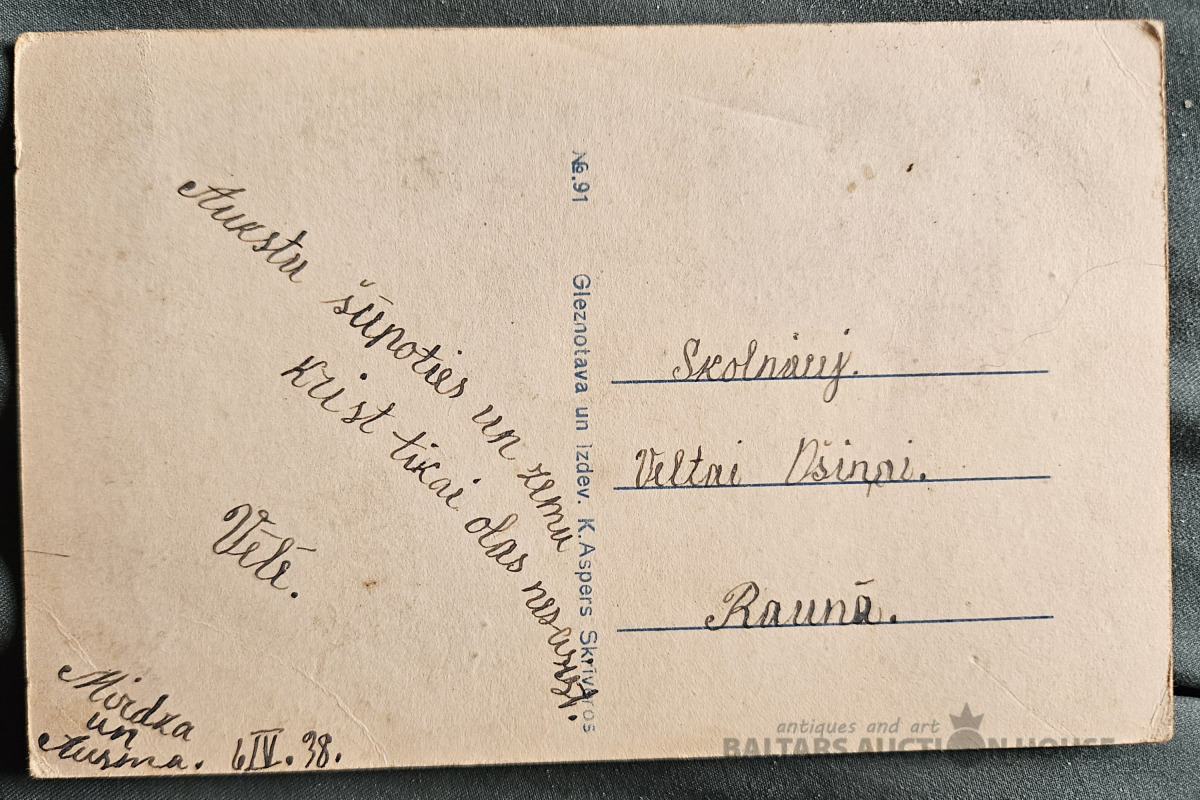 Aukstu šūpoties un zemu
krist tikai olas nesasist.
Vēlē.
Mirdza
un
Ausma. 6 IV. 38.
№.91 Gleznotava un izdev. K. Aspers Skrīveros
Skolniecej.
Veltai Ošiņai.
Raunā.
antiques and art
BALTARS AUCTION HOUSE